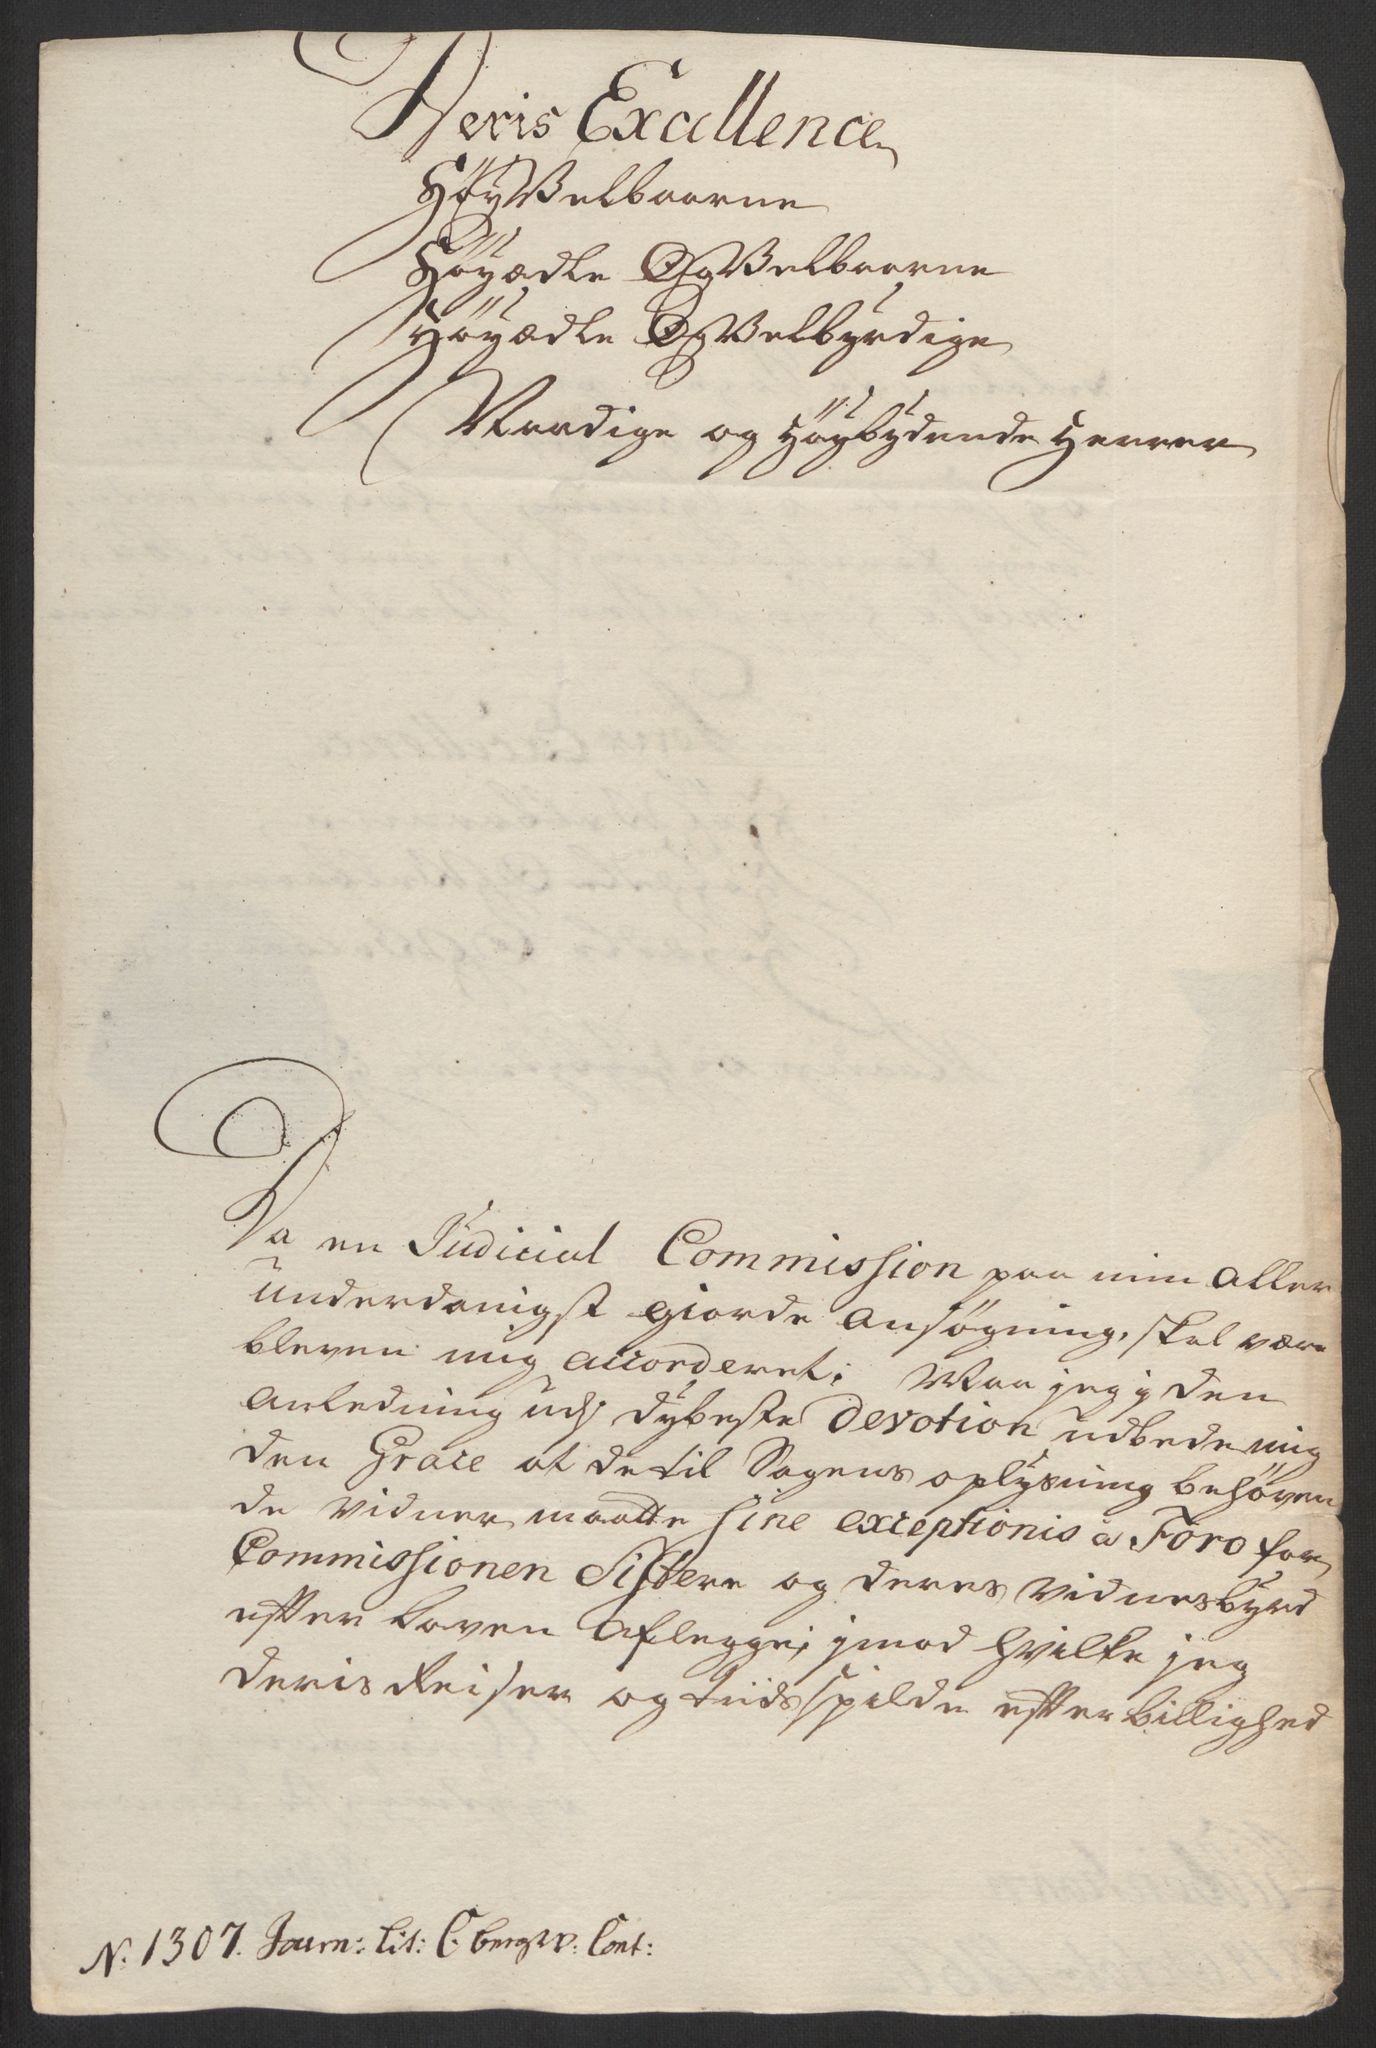 Deris Excellence
HøyVelbaarne
Höyædle OgVelbaarne
Höyædle OgVelbyrdige
Naadige og Höybydende Herrer
Da en Judicial Commission paa min aller
underdanigst giorde Ansøgning, skal være
bleven mig accorderet; Maa jeg j den
Anledning udj dybeste Devotion udbede mig
den Grace at de til Sagens oplysning behöven
de Vidner maatte sine exceptionis à Foro for
Commissionen Sistere og deres Vidnesbyrd
efter Loven aflegge; jmod hvilke jeg
deris Reiser og tids spilde efter billighed
N. 1307. Journ: Lit: C. bergw: Cont: